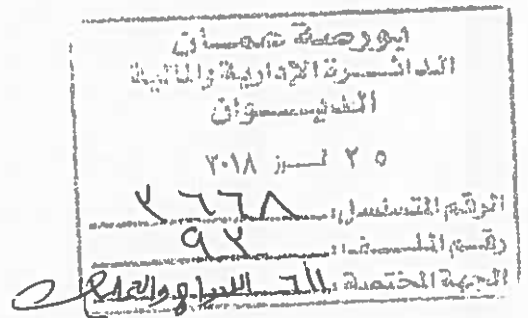 بورصة عمان
الدائرة الإدارية والمالية
الديوان
٢٥ تموز ٢٠١٨
الرقم المتسلسل: ٢٦٦٨
رقم الملف: ٩٢
الجهة المختصة: